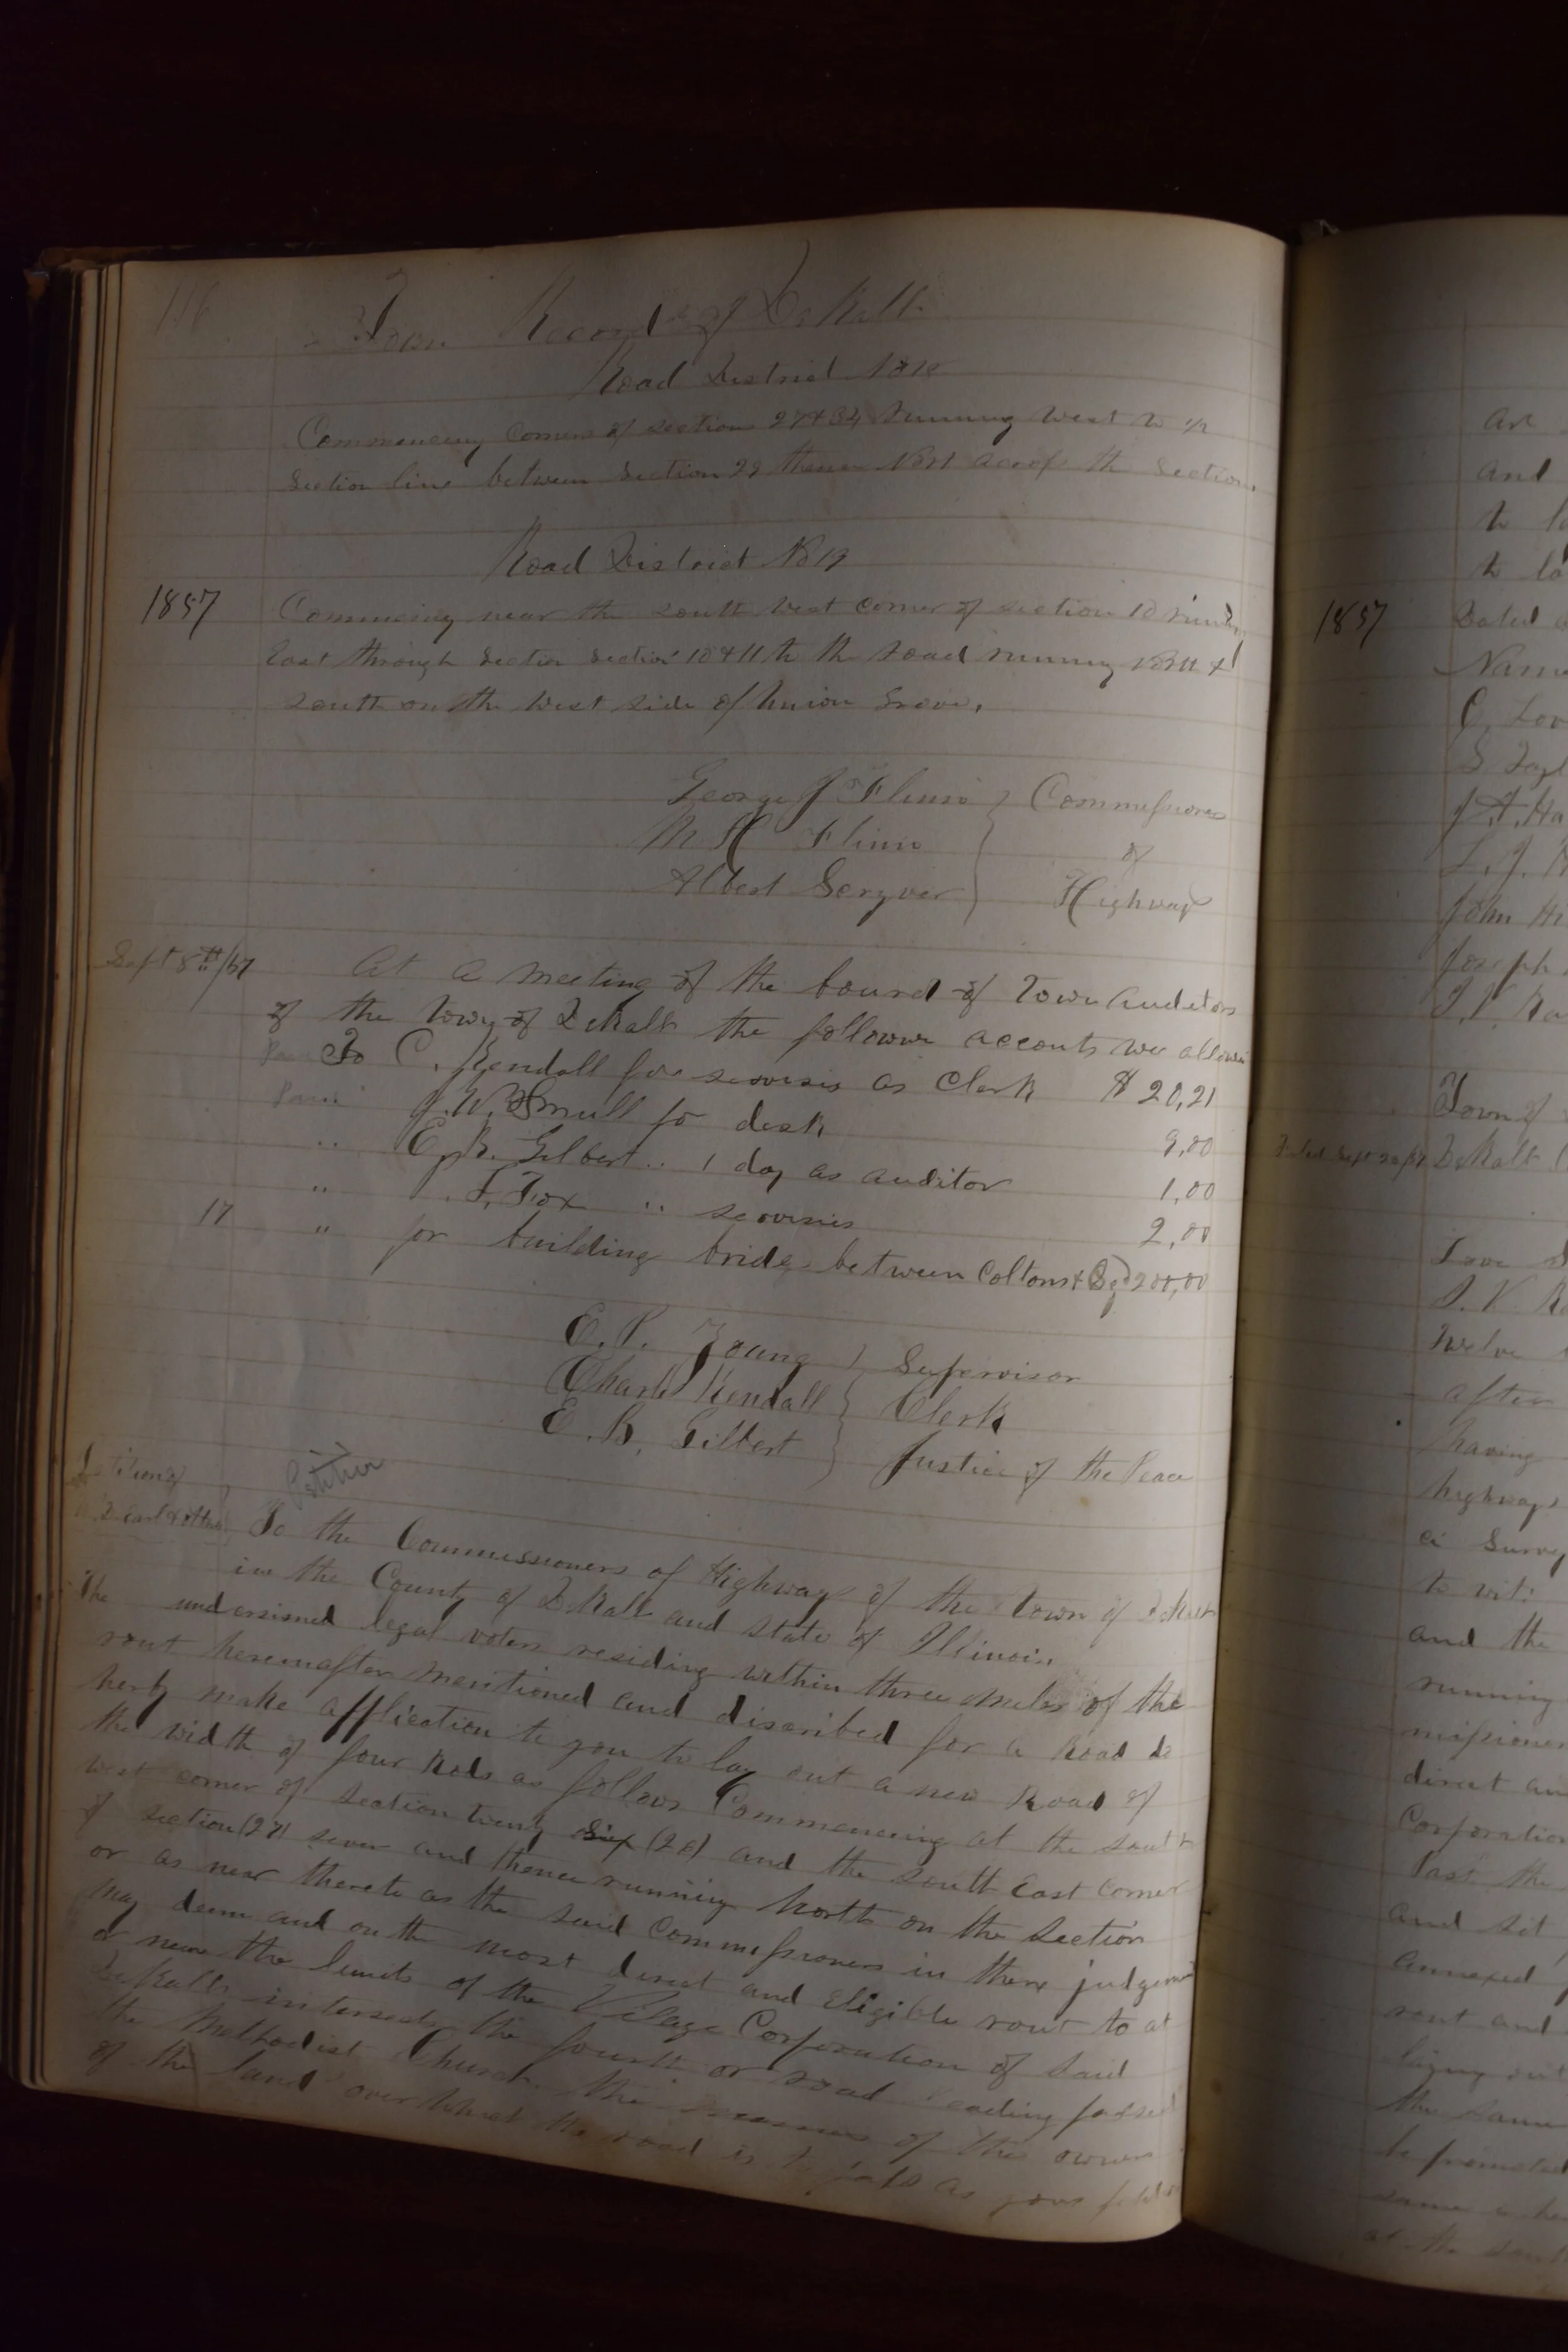 116
Town Records of DeKalb
Road District No 18
Commencing corners of sections 27 & 34 running West to 1/2
Section line between Section 29 thence North across the Section.
Road District No 19
1857
Commencing near the south West corner of section 10 running
East through Section Section 10 & 11 to the road running North &
south on the West side of Union Grove.
George J Flinn } Commissioners
M H Flinn } of
Albert Schryver } Highway
Sept 8th /57
At a meeting of the board of Town Auditors
of the Town of DeKalb the following accounts were allowed
To C. Kendall for servises as Clerk $20,21
J. W. Smull for desk 9,00
" E. B. Gilbert " 1 day as auditor 1,00
" T. Fox " servises 2,00
17 " for building bridge between Coltons & 200,00
E. P. Young } Supervisor
Charls Kendall } Clerk
E. B. Gilbert } Justice of the Peace
Petition of
Petition
D Earl & others } To the Commissioners of Highways of the Town of DeKalb
in the County of DeKalb and State of Illinois.
The undersigned legal voters residing within three miles of the
rout hereinafter mentioned and discribed for a Road do
herby make application to you to lay out a new Road of
the width of four Rods as follows Commencing at the south
west corner of Section twenty Six (26) and the South East corner
of section (27) seven and thence running North on the Section
or as near thereto as the said Commissioners in there judgement
may deem and on the most direct and Eligible rout to at
or near the limits of the Vilage Corporation of Said
DeKalb intersects the fourth or road leading passed
the Methodist Church the of the owners
of the land over which the road is to pass as your
1857
Ar
and
to
to
Dated
Name
J. A. Ha
John Hi
Joseph
Town of
Filed Sept 20/57 DeKalb
twelve
after
having
highways
a Survey
to wit:
and the
running
missioners
direct an
Corporation
Past the
and
annexed
rout and
the same
same
at the south